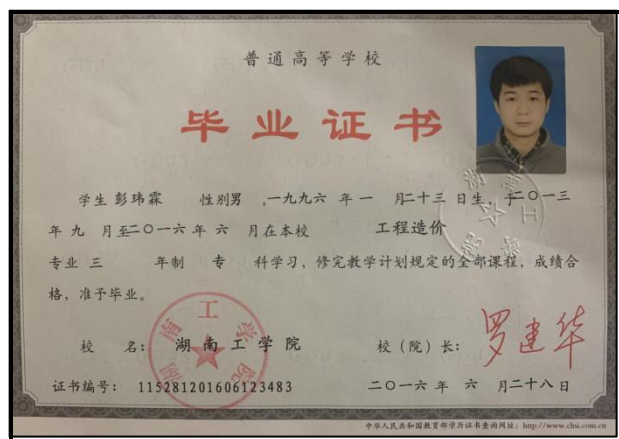 普通高等学校
毕业证书
学生 彭玮霖 性别男 ,一九九六 年 一 月二十三 日生, 于二〇一三
年 九 月至二〇一六 年 六 月在本校 工程造价
专业 三 年制 专 科学习, 修完教学计划规定的全部课程, 成绩合
格, 准予毕业。
校 名: 湖南工学院 校(院)长: 罗建华
湖南工学院
证书编号: 115281201606123483 二〇一六 年 六 月二十八 日
中华人民共和国教育部学历证书查询网址: http://www.chsi.com.cn